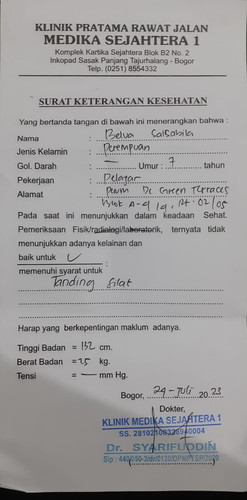 KLINIK PRATAMA RAWAT JALAN
MEDIKA SEJAHTERA 1
Komplek Kartika Sejahtera Blok B2 No. 2
Inkopad Sasak Panjang Tajurhalang - Bogor
Telp. (0251) 8554332
SURAT KETERANGAN KESEHATAN
Yang bertanda tangan di bawah ini menerangkan bahwa :
Nama : Belva Calsabila
Jenis Kelamin : Perempuan
Gol. Darah : — Umur : 7 tahun
Pekerjaan : Pelajar
Alamat : Perum De Green Terraces
Blok A-9 / 19, Rt. 02/05
Pada saat ini menunjukkan dalam keadaan Sehat.
Pemeriksaan Fisik/radiologi/laboratorik, ternyata tidak
menunjukkan adanya kelainan dan
baik untuk :
memenuhi syarat untuk
Tanding Silat
Harap yang berkepentingan maklum adanya.
Tinggi Badan = 132 cm.
Berat Badan = 25 kg.
Tensi = — mm Hg.
Bogor, 24 - Juli 2023
Dokter,
KLINIK MEDIKA SEJAHTERA 1
Dr. SYARIFUDDIN